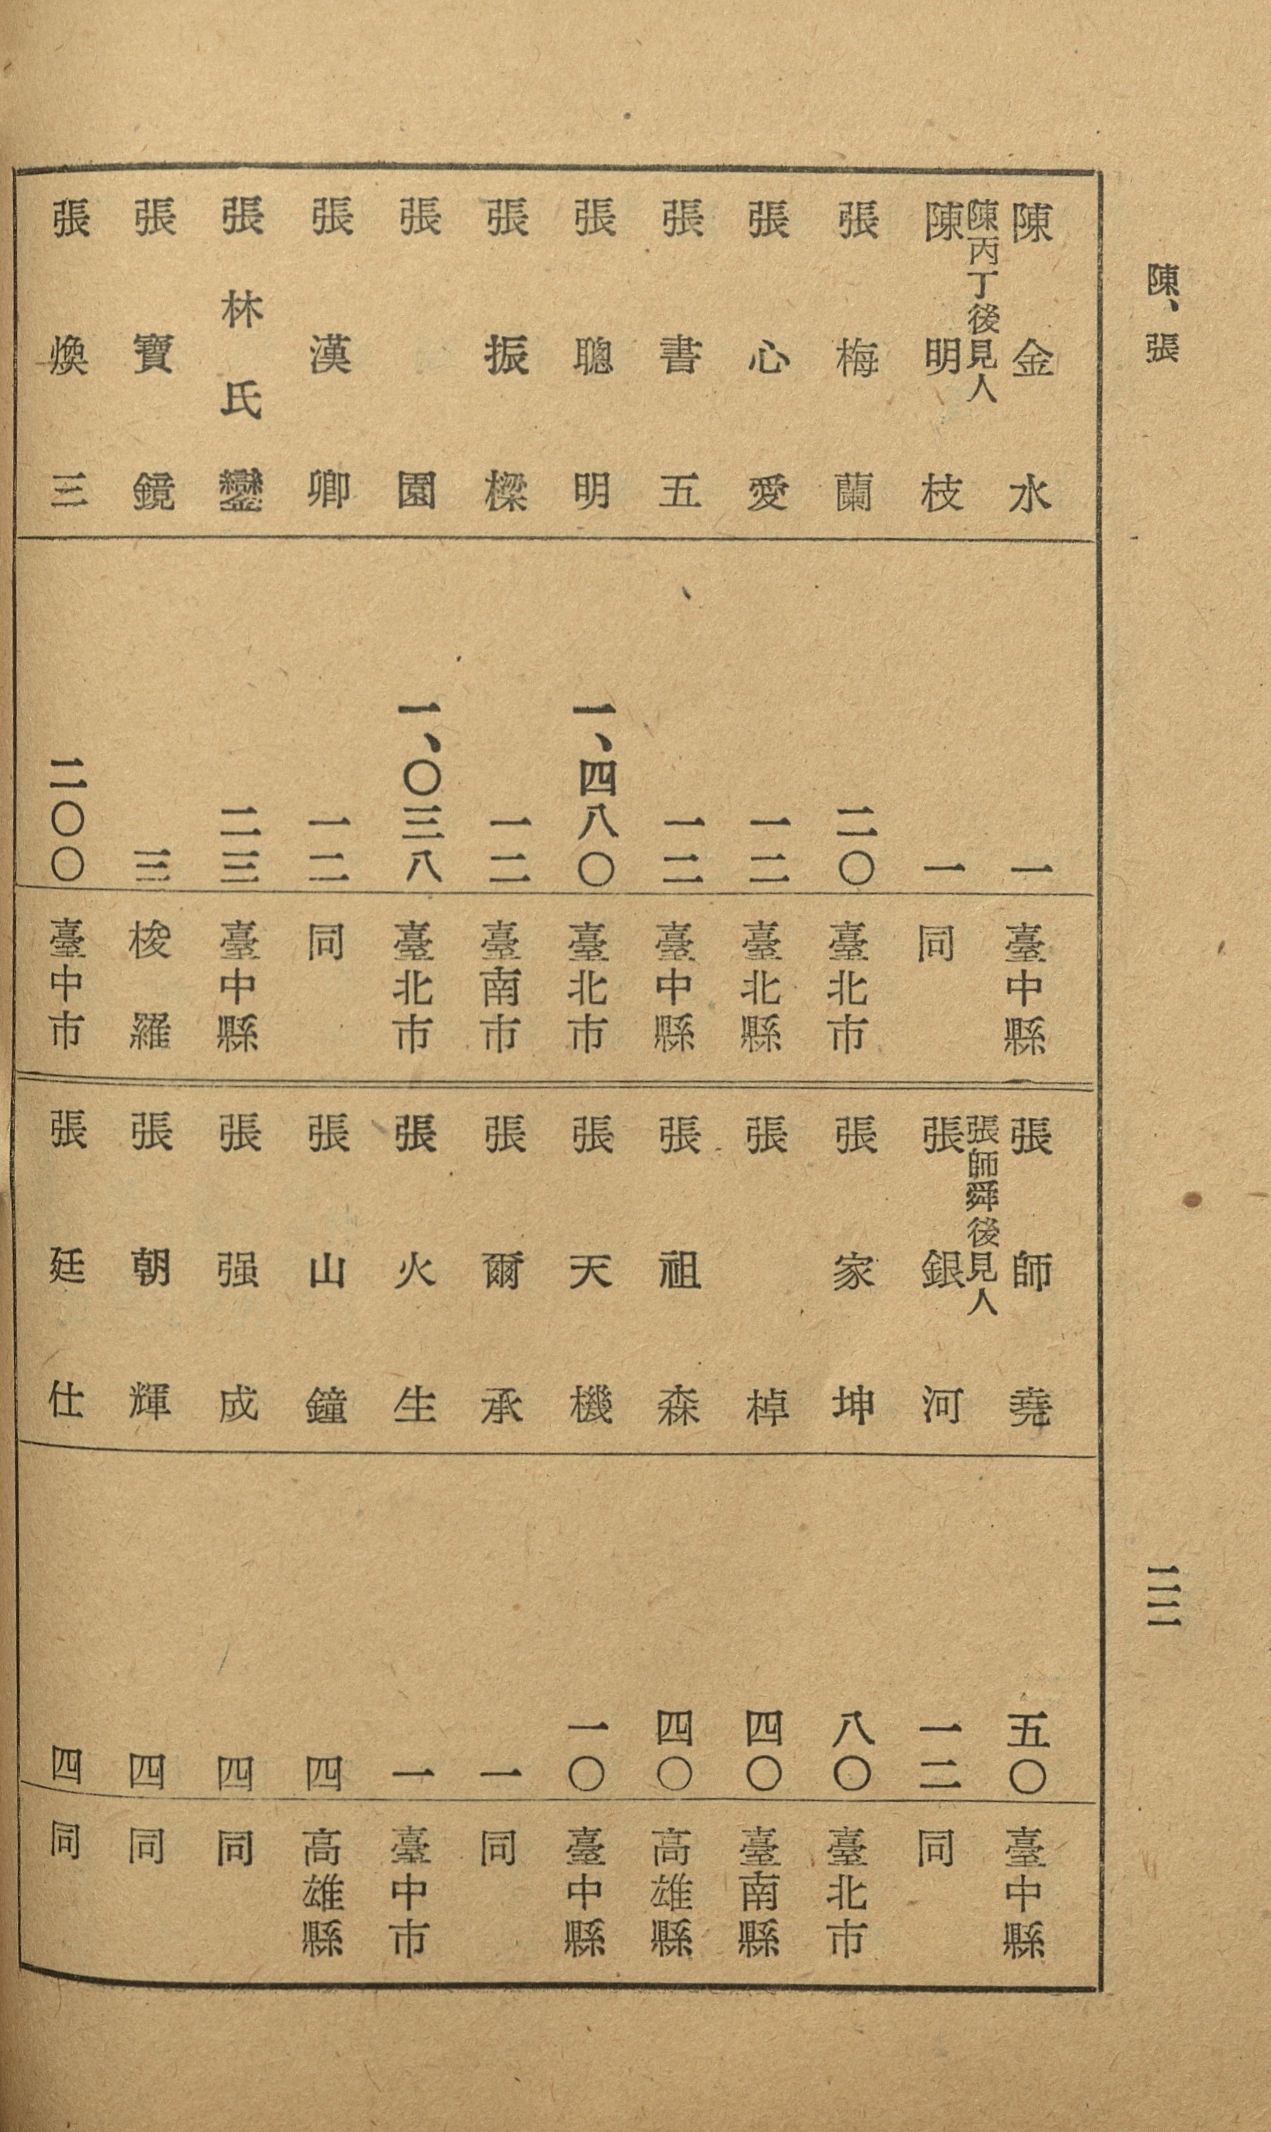 陳、張
二二
陳金水 一 臺中縣
陳丙丁後見人
陳明枝 一 同
張梅蘭 二〇 臺北市
張心愛 一二 臺北縣
張書五 一二 臺中縣
張聰明 一、四八〇 臺北市
張振樑 一二 臺南市
張園 一、〇三八 臺北市
張漢卿 一二 同
張林氏鑾 二三 臺中縣
張寶鏡 三 梭羅
張煥三 二〇〇 臺中市
張師堯 五〇 臺中縣
張師舜後見人
張銀河 一二 同
張家坤 八〇 臺北市
張棹 四〇 臺南縣
張祖森 四〇 高雄縣
張天機 一〇 臺中縣
張爾承 一 同
張火生 一 臺中市
張山鐘 四 高雄縣
張强成 四 同
張朝輝 四 同
張廷仕 四 同